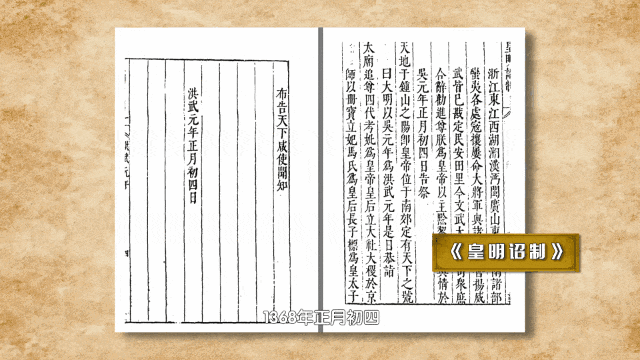 皇明詔制
浙江東江西湖湘漢沔閩廣山東
南諸部
蠻夷各處寇攘屢命大將軍與諸
奮揚威
武皆已戡定民安田里今文武大
百司衆庶
合辭勸進尊朕為皇帝以主黔黎
輿情於
吳元年正月初四日告祭
天地于鐘山之陽卽皇帝位于南郊定有天下之號
曰大明以吳元年為洪武元年是日恭詣
太廟追尊四代考妣為皇帝皇后立大社大稷於京
師以冊寶立妃馬氏為皇后長子標為皇太子
布告天下咸使聞知
洪武元年正月初四日
《皇明诏制》
1368年正月初四